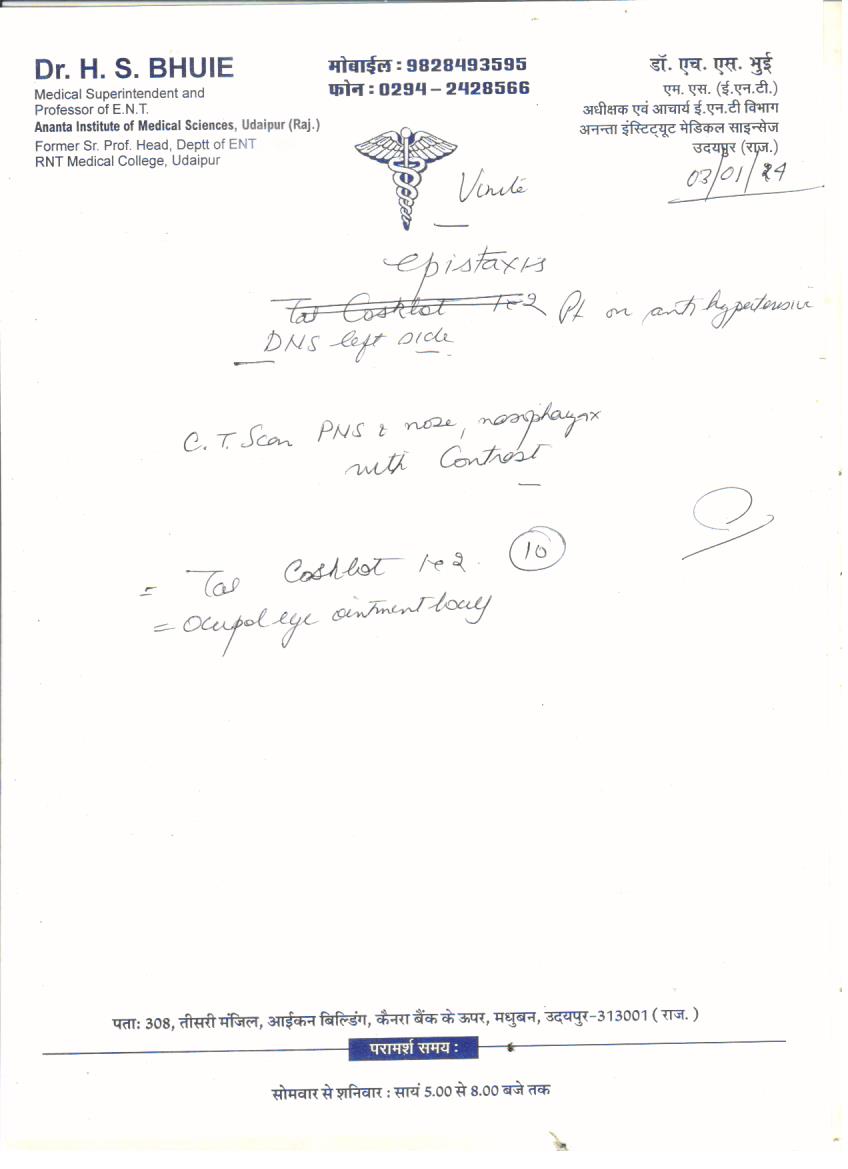 Dr. H. S. BHUIE
Medical Superintendent and
Professor of E.N.T.
Ananta Institute of Medical Sciences, Udaipur (Raj.)
Former Sr. Prof. Head, Deptt of ENT
RNT Medical College, Udaipur
मोबाईल : 9828493595
फोन : 0294 – 2428566
डॉ. एच. एस. भुई
एम. एस. (ई.एन.टी.)
अधीक्षक एवं आचार्य ई.एन.टी विभाग
अनन्ता इंस्टिट्यूट मेडिकल साइन्सेज
उदयपुर (राज.)
03/01/24
epistaxis
Pt on antihypertensive
DNS left side
C. T. Scan PNS & nose, nasopharynx
with Contrast
= Tab 1-2 10
= eye ointment
पताः 308, तीसरी मंजिल, आईकन बिल्डिंग, कैनरा बैंक के ऊपर, मधुबन, उदयपुर-313001 ( राज. )
परामर्श समय :
सोमवार से शनिवार : सायं 5.00 से 8.00 बजे तक